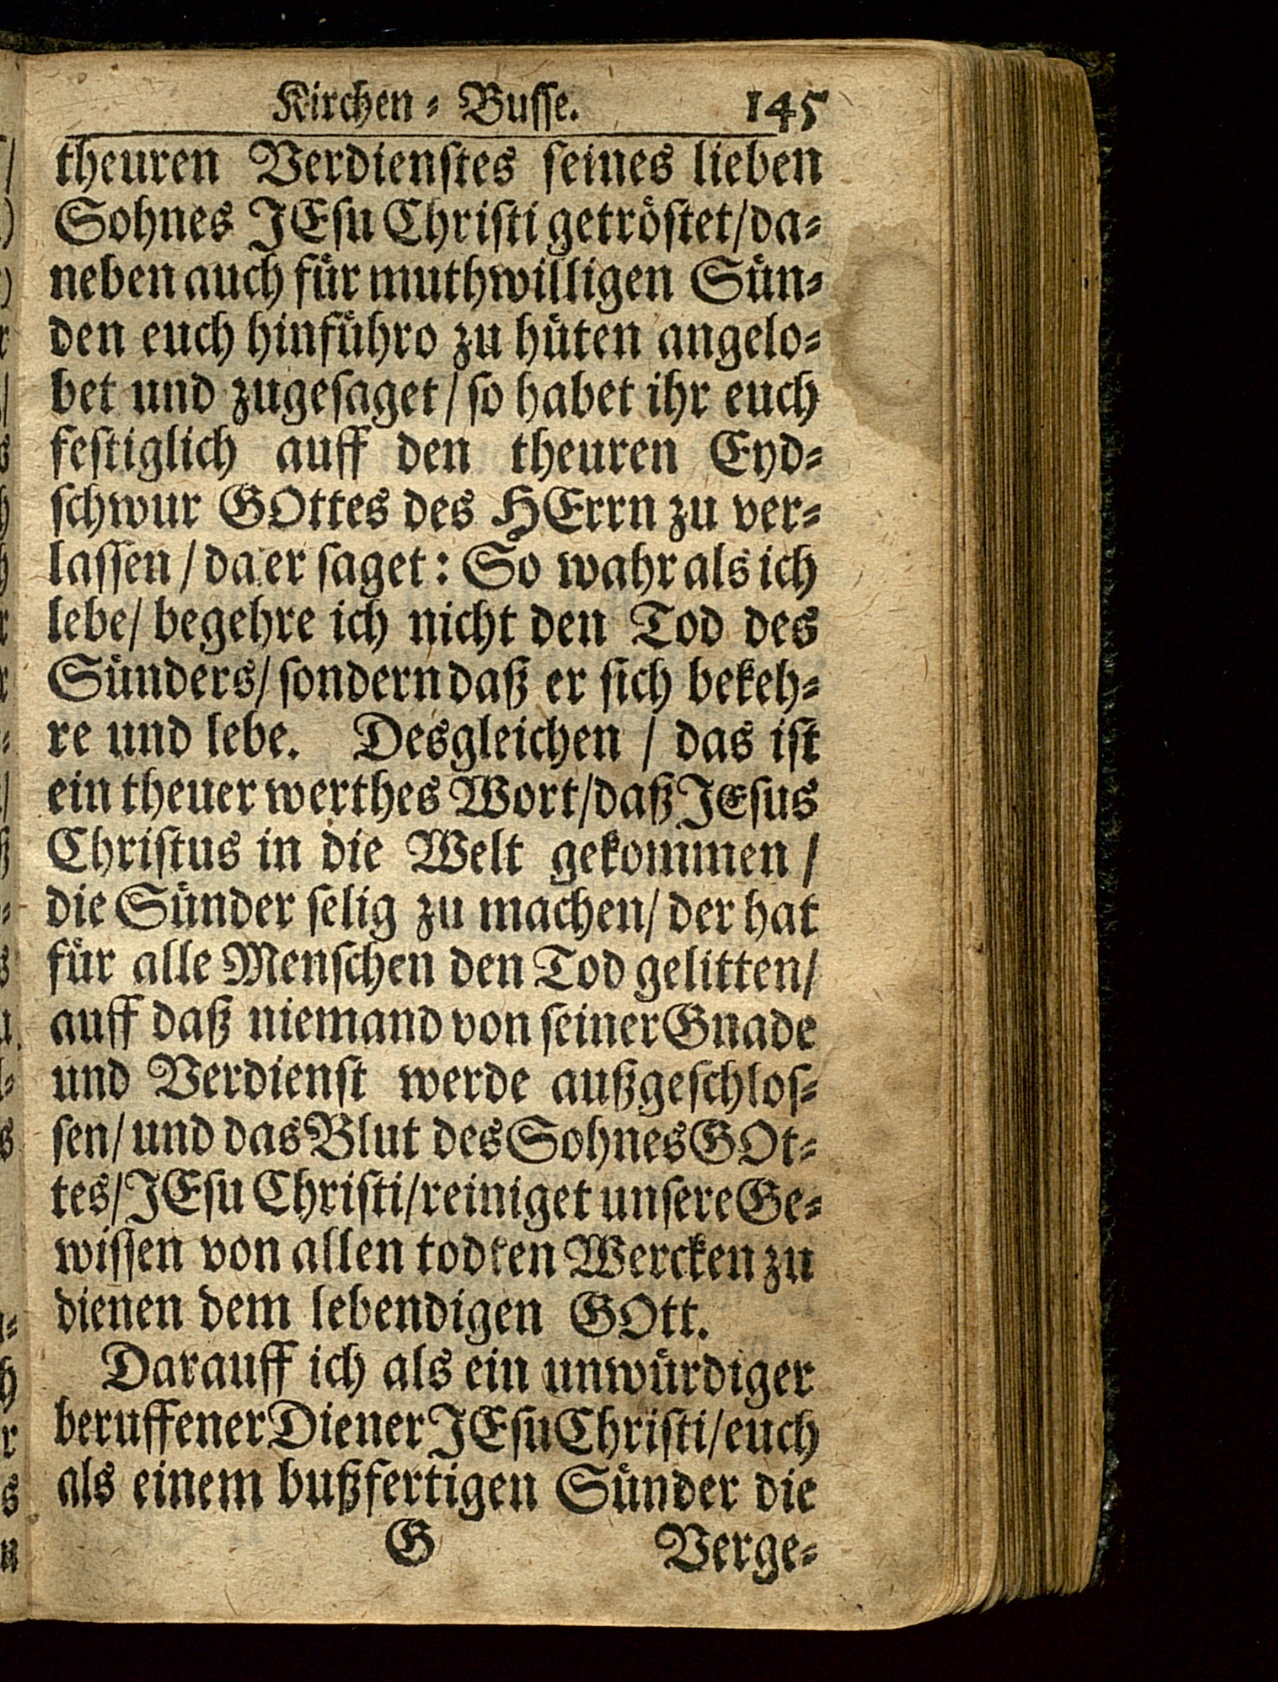 Kirchen⸗Busse. 145
theuren Verdienſtes ſeines lieben
Sohnes JEſu Chriſti getröſtet/da⸗
neben auch für muthwilligen Sün⸗
den euch hinführo zu hüten angelo⸗
bet und zugeſaget/ ſo habet ihr euch
feſtiglich auff den theuren Eyd⸗
ſchwur GOttes des HErrn zu ver⸗
laſſen/ da er ſaget: So wahr als ich
lebe/ begehre ich nicht den Tod des
Sünders/ ſondern daß er ſich bekeh⸗
re und lebe. Desgleichen / das iſt
ein theuer werthes Wort/daß JEſus
Chriſtus in die Welt gekommen /
die Sünder ſelig zu machen/ der hat
für alle Menſchen den Tod gelitten/
auff daß niemand von ſeiner Gnade
und Verdienſt werde außgeſchloſ⸗
ſen/ und das Blut des Sohnes GOt⸗
tes/JEſu Chriſti/reiniget unſere Ge⸗
wiſſen von allen todten Wercken zu
dienen dem lebendigen GOtt.
Darauff ich als ein unwürdiger
beruffener Diener JEſu Chriſti/euch
als einem bußfertigen Sünder die
G Verge⸗